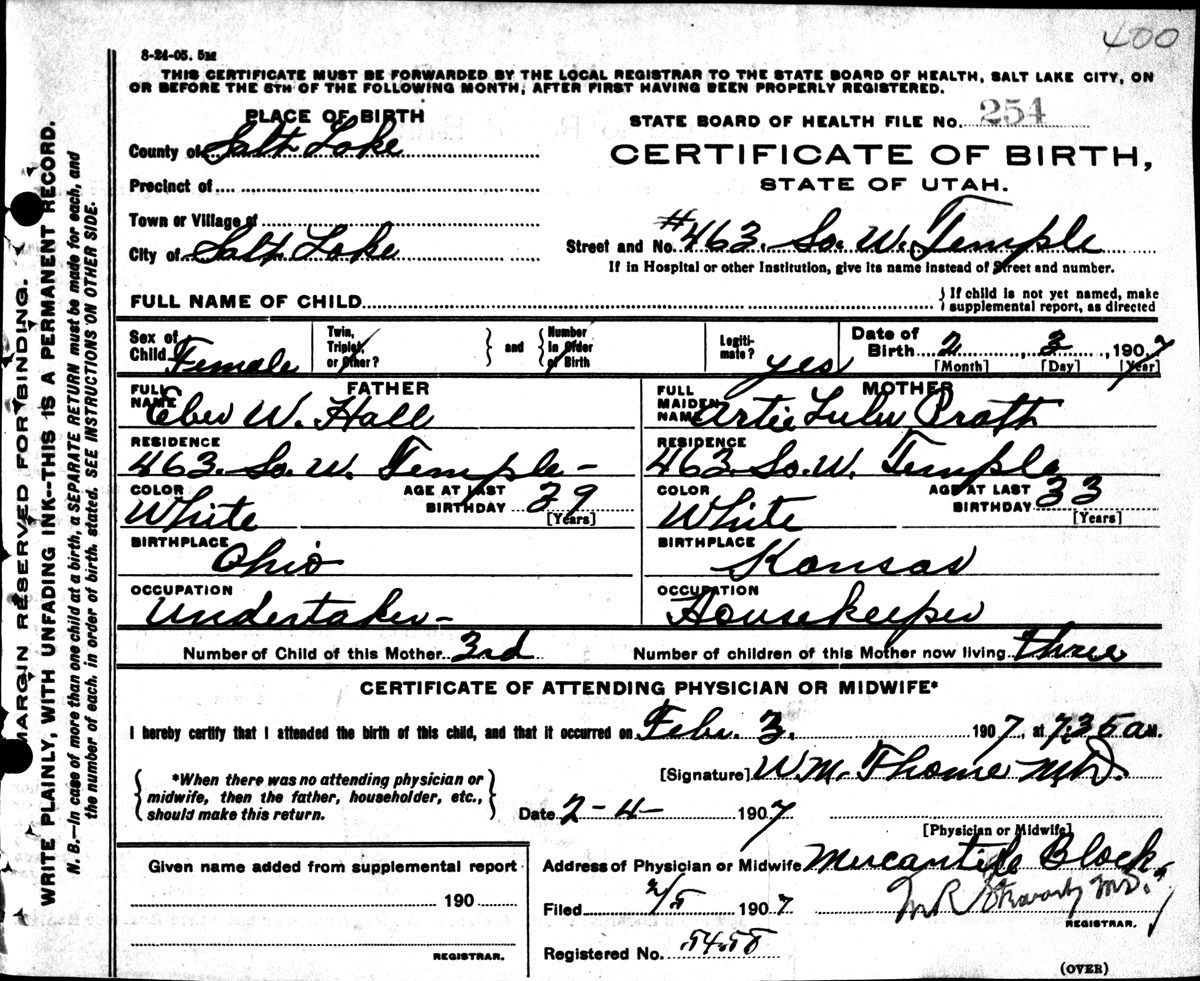 400
8-24-05. 5M
THIS CERTIFICATE MUST BE FORWARDED BY THE LOCAL REGISTRAR TO THE STATE BOARD OF HEALTH, SALT LAKE CITY, ON
OR BEFORE THE 5TH OF THE FOLLOWING MONTH, AFTER FIRST HAVING BEEN PROPERLY REGISTERED.
PLACE OF BIRTH
STATE BOARD OF HEALTH FILE No. 254
County of Salt Lake
CERTIFICATE OF BIRTH,
STATE OF UTAH.
Precinct of
Town or Village of
City of Salt Lake
Street and No. #463. So. W. Temple
If in Hospital or other Institution, give its name instead of Street and number.
FULL NAME OF CHILD
{ If child is not yet named, make
supplemental report, as directed
Sex of Child Female
Twin, Triplet, or Other? } and { Number in Order of Birth
Legiti-mate? yes
Date of Birth 2 3, 1907
[Month] [Day] [Year]
FATHER
FULL NAME Eber W. Hall
RESIDENCE
463. So. W. Temple-
COLOR White
AGE AT LAST BIRTHDAY 39
[Years]
BIRTHPLACE
Ohio
OCCUPATION
Undertaker-
MOTHER
FULL MAIDEN NAME Artie Lulu Pratt
RESIDENCE
463 So. W. Temple
COLOR White
AGE AT LAST BIRTHDAY 33
[Years]
BIRTHPLACE
Kansas
OCCUPATION
Housekeeper
Number of Child of this Mother 3rd
Number of children of this Mother now living three
CERTIFICATE OF ATTENDING PHYSICIAN OR MIDWIFE*
I hereby certify that I attended the birth of this child, and that it occurred on Febr. 3. 1907, at 7:35 a M.
{ *When there was no attending physician or
midwife, then the father, householder, etc.,
should make this return. }
[Signature] W. M. Thome M.D.
Date 2-4- 1907
[Physician or Midwife]
Given name added from supplemental report
190
REGISTRAR.
Address of Physician or Midwife Mercantile Block.
Filed 2/5 1907
M R Stewart MD.
REGISTRAR.
Registered No. 5458
(OVER)
MARGIN RESERVED FOR BINDING.
WRITE PLAINLY, WITH UNFADING INK--THIS IS A PERMANENT RECORD.
N. B.—In case of more than one child at a birth, a SEPARATE RETURN must be made for each, and
the number of each, in order of birth, stated. SEE INSTRUCTIONS ON OTHER SIDE.